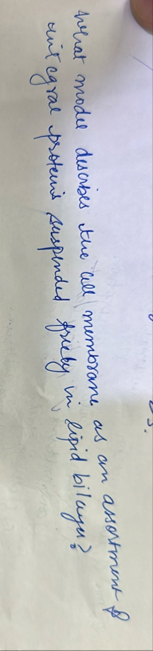 what model describes the cell membrane as an assortment of
integral proteins suspended freely in lipid bilayer?